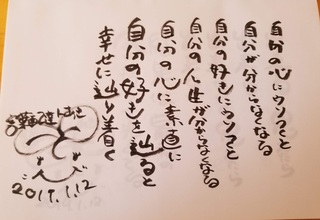 自分の心にウソつくと
自分が分からなくなる
自分の好きにウソつくと
自分の人生が分からなくなる
自分の心に素直に
自分の好きを辿ると
幸せに辿り着く
2017.1.12